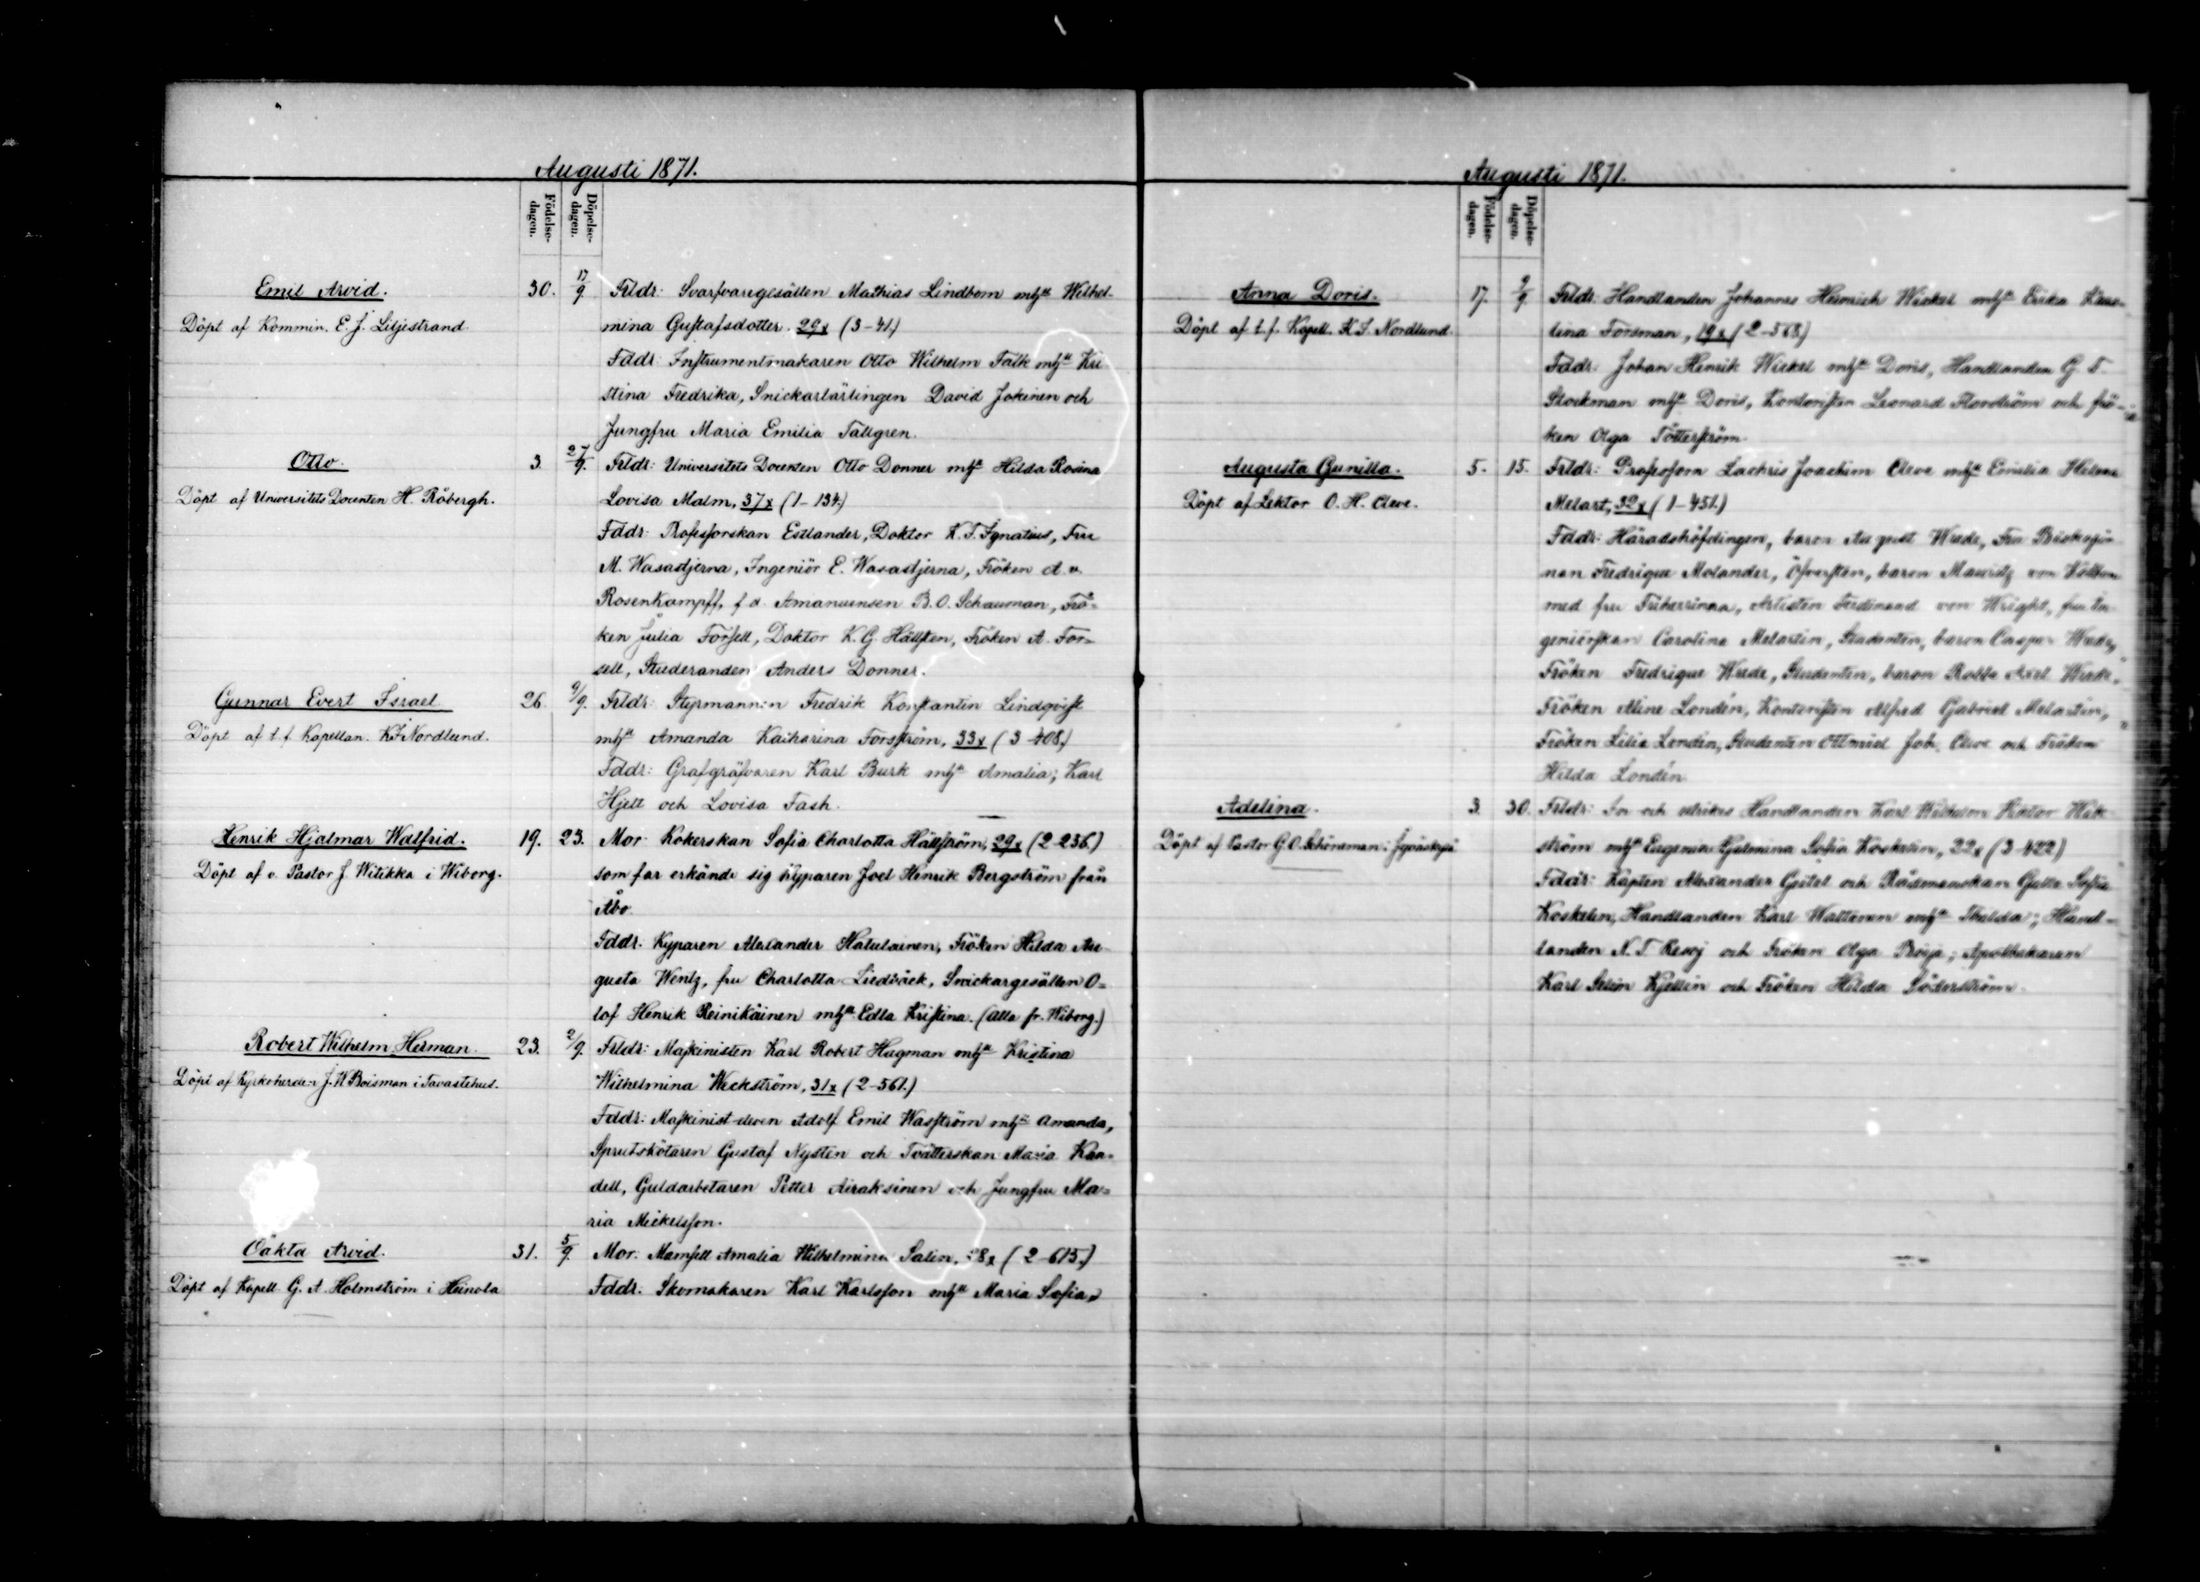 Augusti 1871.
Födelse-
dagen.
Döpelse-
dagen.
Emil Arvid.
Döpt af Kommin. E. J. Liljestrand.
30. 17/9. Frldr: Svarfvaregesällen Mathias Lindbom mhu Wilhel-
mina Gustafsdotter. 29x (3-41.)
Fddr: Instrumentmakaren Otto Wilhelm Falk mhu Kri-
stina Fredrika, Snickarlärlingen David Jokinen och
Jungfru Maria Emilia Tallgren.
Otto.
Döpt af Universitets Docenten H. Råbergh.
3. 27/9. Frldr: Universitets Docenten Otto Donner mhu Hilda Rosina
Lovisa Malm, 37x (1-134.)
Fddr: Professorskan Estlander, Doktor K. F. Ignatius, Fru
M. Wasastjerna, Ingeniör E. Wasastjerna, Fröken A. v.
Rosenkampff, f. d. Amanuensen B. O. Schauman, Frö-
ken Julia Forsell, Doktor K. G. Hällsten, Fröken A. For-
sell, Studeranden Anders Donner.
Gunnar Evert Israel
Döpt af t. f. Kapellan. K. J. Nordlund.
26. 9/9. Frldr: Styrmannen Fredrik Konstantin Lindqvist
mhu Amanda Katharina Forsström, 33x (3-408.)
Fddr: Grafgräfvaren Karl Burk mhu Amalia; Karl
Hjelt och Lovisa Fash.
Henrik Hjalmar Walfrid.
Döpt af v. Pastor J. Witikka i Wiborg.
19. 23. Mor: Kokerskan Sofia Charlotta Hällström, 29x (2-236.)
som far erkände sig kyparen Joel Henrik Bergström från
Åbo.
Fddr. Kyparen Alexander Halulainen, Fröken Hilda Au-
gusta Wentz, fru Charlotta Liedbäck, Snickargesällen O-
lof Henrik Reinikäinen mhu Edla Kristina. (Alla fr. Wiborg.)
Robert Wilhelm Herman.
Döpt af Kyrkoherden J. W. Boisman i Tavastehus.
23. 2/9. Frldr: Maskinisten Karl Robert Hagman mhu Kristina
Wilhelmina Weckström, 31x (2-561.)
Fddr: Maskinist-eleven Adolf Emil Wasström mhu Amanda,
Sprutskötaren Gustaf Nysten och Tvätterskan Maria Kan-
dell, Guldarbetaren Petter Airaksinen och Jungfru Ma-
ria Mickelsson.
Oäkta Arvid.
Döpt af Kapell. G. A. Holmström i Heinola
31. 5/9. Mor: Mamsell Amalia Wilhelmina Salin, 28x (2-615.)
Fddr. Skomakaren Karl Karlsson mhu Maria Sofia.
Augusti 1871.
Födelse-
dagen.
Döpelse-
dagen.
Anna Doris.
Döpt af t. f. Kapell. K. J. Nordlund.
17. 9/9 Frldr: Handlanden Johannes Heinrich Wickel mhu Erika Kris-
tina Forsman, 19x (2-568.)
Fddr: Johan Henrik Wickel mhu Doris, Handlanden G. F.
Stockman mhu Doris, Kontoristen Leonard Flodström och frö-
ken Olga Tötterström.
Augusta Gunilla.
Döpt af Lektor O. H. Cleve.
5. 15. Frldr: Professorn Zachris Joachim Cleve mhu Emilia Helena
Melart, 32x (1-451.)
Fddr: Häradshöfdingen, baron August Wrede, Fru
Fredrique Molander, Öfversten, baron Mauritz von
med fru Friherrinna, Artisten Ferdinand von Wright, fru In-
geniörskan Carolina Melartin, Studenten, baron Casper Wrede,
Fröken Fredrique Wrede, Studenten, baron Rabbe Axel Wrede,
Fröken Aline Londén, Kontoristen Alfred Gabriel Melartin,
Fröken Lilia Londén, Studenten Joh. Cleve och Fröken
Hilda Londén.
Adelina.
Döpt af Pastor G. O. Schöneman i Jyväskylä
3. 30. Frldr: In- och utrikes Handlanden Karl Wilhelm Viktor Wik-
ström mhu Eugenia Hjelmina Sofia Koskelin, 22x (3-422)
Fddr: Kapten Alexander Geitel och Rådmanskan Gulla Sofia
Koskelin, Handlanden Karl mhu Thilda; Hand-
landen N. T. och Fröken Olga; Apothekaren
Karl Selim Kjellin och Fröken Hilda Söderström.